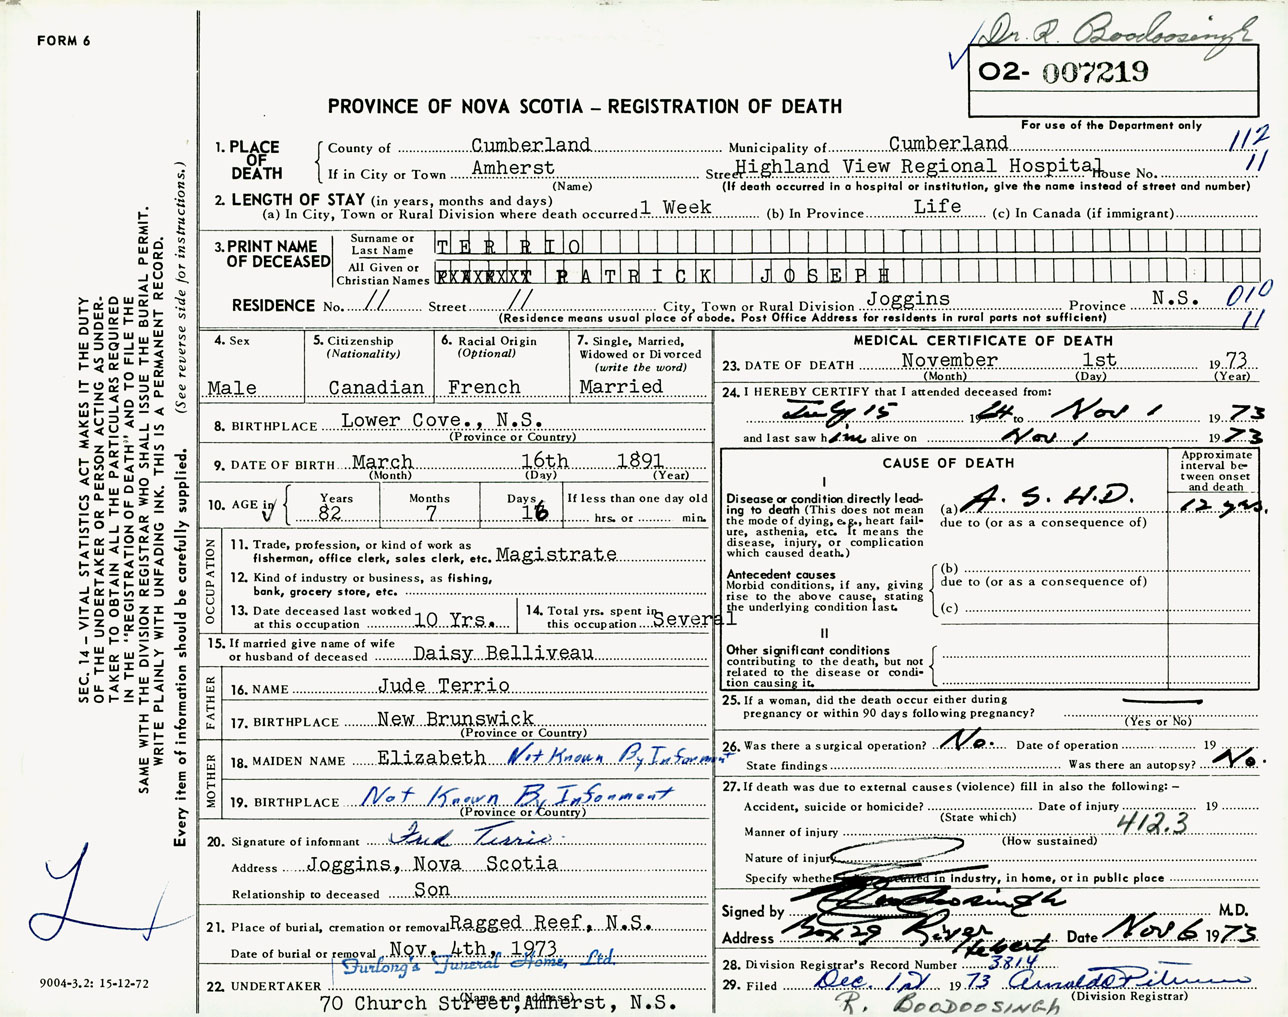 FORM 6
Dr. R. Boodoosingh
02- 007219
For use of the Department only
PROVINCE OF NOVA SCOTIA – REGISTRATION OF DEATH
SEC. 14 – VITAL STATISTICS ACT MAKES IT THE DUTY
OF THE UNDERTAKER OR PERSON ACTING AS UNDER-
TAKER TO OBTAIN ALL THE PARTICULARS REQUIRED
IN THE "REGISTRATION OF DEATH" AND TO FILE THE
SAME WITH THE DIVISION REGISTRAR WHO SHALL ISSUE THE BURIAL PERMIT.
WRITE PLAINLY WITH UNFADING INK. THIS IS A PERMANENT RECORD.
Every item of information should be carefully supplied. (See reverse side for instructions.)
1. PLACE OF DEATH
County of Cumberland Municipality of Cumberland 112
If in City or Town Amherst Street Highland View Regional Hospital House No. 11
(Name) (If death occurred in a hospital or institution, give the name instead of street and number)
2. LENGTH OF STAY (in years, months and days)
(a) In City, Town or Rural Division where death occurred 1 Week (b) In Province Life (c) In Canada (if immigrant)
3. PRINT NAME OF DECEASED
Surname or Last Name TERRIO
All Given or Christian Names PATRICK JOSEPH
RESIDENCE No. // Street // City, Town or Rural Division Joggins Province N.S. 010
(Residence means usual place of abode. Post Office Address for residents in rural parts not sufficient) 11
4. Sex
Male
5. Citizenship
(Nationality)
Canadian
6. Racial Origin
(Optional)
French
7. Single, Married,
Widowed or Divorced
(write the word)
Married
8. BIRTHPLACE Lower Cove., N.S.
(Province or Country)
9. DATE OF BIRTH March 16th 1891
(Month) (Day) (Year)
10. AGE in Years Months Days If less than one day old
82 7 16 hrs. or min.
OCCUPATION
11. Trade, profession, or kind of work as
fisherman, office clerk, sales clerk, etc. Magistrate
12. Kind of industry or business, as fishing,
bank, grocery store, etc.
13. Date deceased last worked
at this occupation 10 Yrs.
14. Total yrs. spent in
this occupation Several
15. If married give name of wife
or husband of deceased Daisy Belliveau
FATHER
16. NAME Jude Terrio
17. BIRTHPLACE New Brunswick
(Province or Country)
MOTHER
18. MAIDEN NAME Elizabeth Not Known By Informent
19. BIRTHPLACE Not Known By Informent
(Province or Country)
20. Signature of informant Fred Terrio
Address Joggins, Nova Scotia
Relationship to deceased Son
21. Place of burial, cremation or removal Ragged Reef, N.S.
Date of burial or removal Nov. 4th, 1973
Furlong's Funeral Home, Ltd.
22. UNDERTAKER
(Name and Address)
70 Church Street, Amherst, N.S.
9004-3.2: 15-12-72
MEDICAL CERTIFICATE OF DEATH
23. DATE OF DEATH November 1st 1973
(Month) (Day) (Year)
24. I HEREBY CERTIFY that I attended deceased from:
July 15 1964 to Nov 1 1973
and last saw him alive on Nov 1 1973
CAUSE OF DEATH
Approximate
interval be-
tween onset
and death
I
Disease or condition directly lead-
ing to death (This does not mean
the mode of dying, e.g., heart fail-
ure, asthenia, etc. It means the
disease, injury, or complication
which caused death.)
(a) A.S.H.D. 12 yrs.
due to (or as a consequence of)
Antecedent causes
Morbid conditions, if any, giving
rise to the above cause, stating
the underlying condition last.
(b)
due to (or as a consequence of)
(c)
II
Other significant conditions
contributing to the death, but not
related to the disease or condi-
tion causing it.
25. If a woman, did the death occur either during
pregnancy or within 90 days following pregnancy?
(Yes or No)
26. Was there a surgical operation? No. Date of operation 19
State findings Was there an autopsy? No.
27. If death was due to external causes (violence) fill in also the following: –
Accident, suicide or homicide? Date of injury 19
(State which)
412.3
Manner of injury
(How sustained)
Nature of injury
Specify whether occurred in industry, in home, or in public place
Signed by Boodoosingh M.D.
Address Box 29 River Hebert Date Nov 6 1973
28. Division Registrar's Record Number 3814
29. Filed Dec. 1st 1973
(Division Registrar)
R. BOODOOSINGH